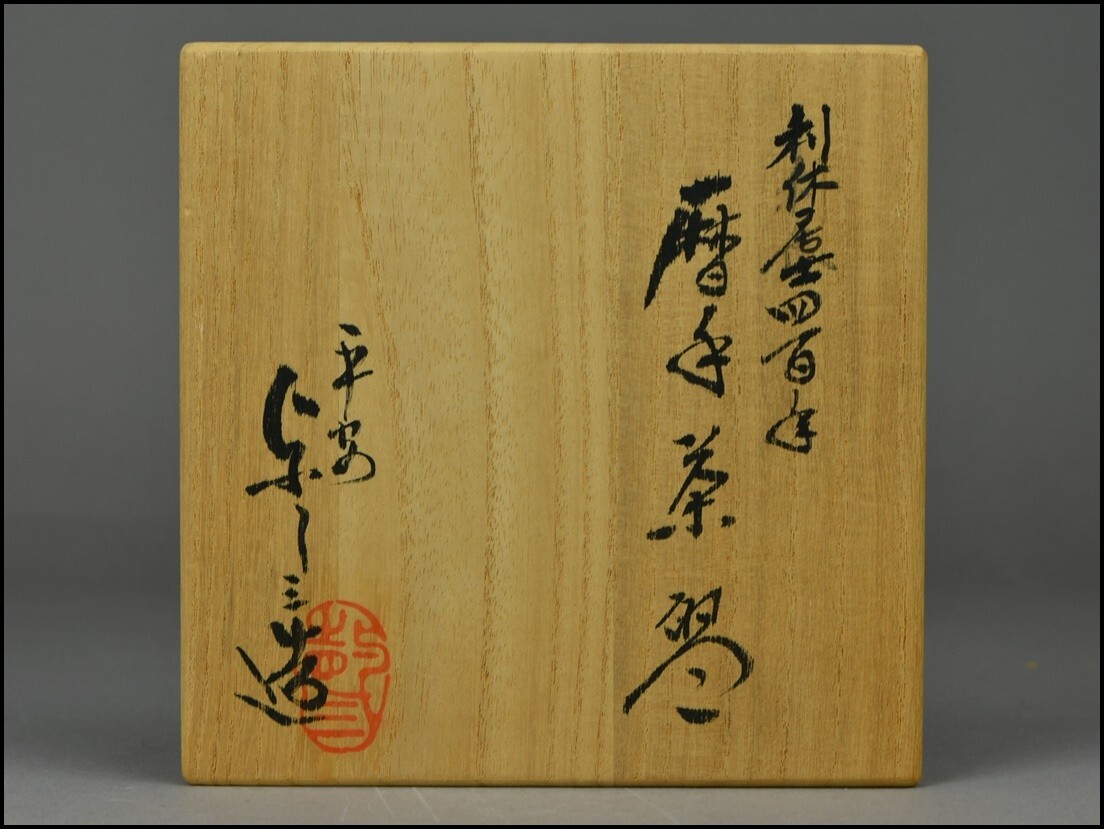 利休居士四百年
暦手茶盌
平安
三造